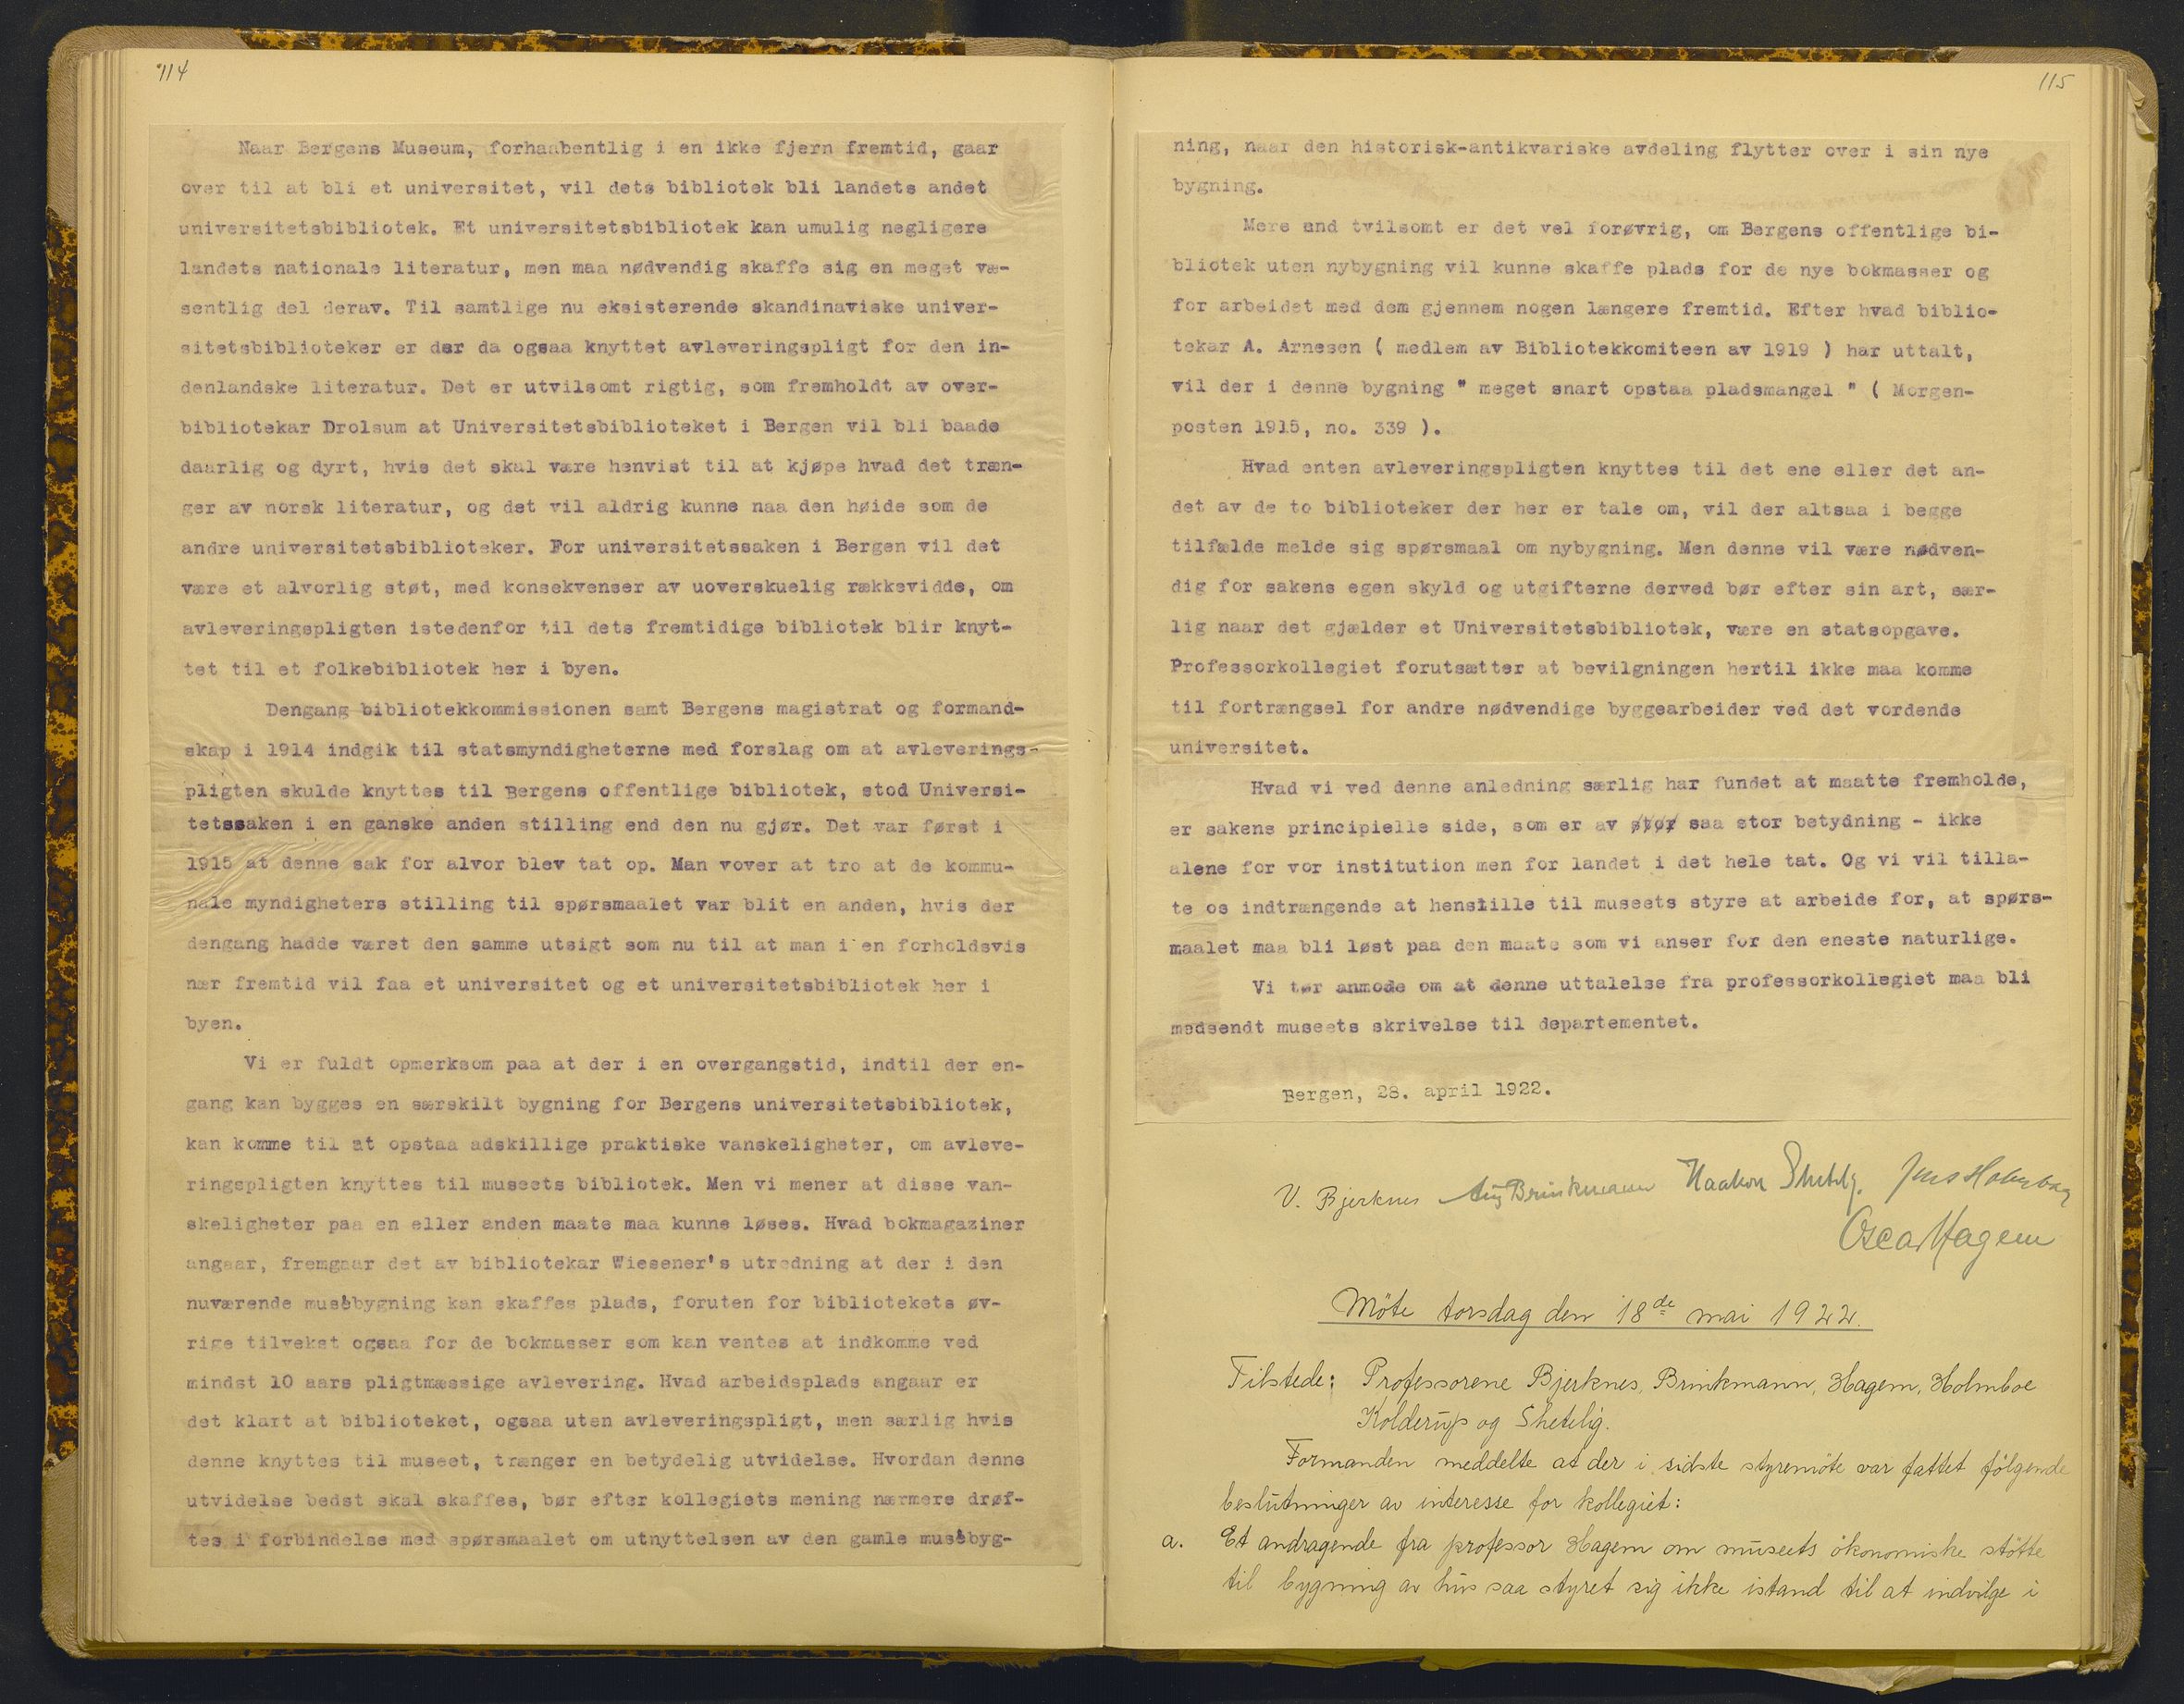 114
Naar Bergens Museum, forhaabentlig i en ikke fjern fremtid, gaar
over til at bli et universitet, vil dets bibliotek bli landets andet
universitetsbibliotek. Et universitetsbibliotek kan umulig negligere
landets nationale literatur, men maa nødvendig skaffe sig en meget væ-
sentlig del derav. Til samtlige nu eksisterende skandinaviske univer-
sitetsbiblioteker er der da ogsaa knyttet avleveringspligt for den in-
denlandske literatur. Det er utvilsomt rigtig, som fremholdt av over-
bibliotekar Drolsum at Universitetsbiblioteket i Bergen vil bli baade
daarlig og dyrt, hvis det skal være henvist til at kjøpe hvad det træn-
ger av norsk literatur, og det vil aldrig kunne naa den høide som de
andre universitetsbiblioteker. For universitetssaken i Bergen vil det
være et alvorlig støt, med konsekvenser av uoverskuelig rækkevidde, om
avleveringspligten istedenfor til dets fremtidige bibliotek blir knyt-
tet til et folkebibliotek her i byen.
Dengang bibliotekkommissionen samt Bergens magistrat og formand-
skap i 1914 indgik til statsmyndigheterne med forslag om at avleverings-
pligten skulde knyttes til Bergens offentlige bibliotek, stod Universi-
tetssaken i en ganske anden stilling end den nu gjør. Det var først i
1915 at denne sak for alvor blev tat op. Man vover at tro at de kommu-
nale myndigheters stilling til spørsmaalet var blit en anden, hvis der
dengang hadde været den samme utsigt som nu til at man i en forholdsvis
nær fremtid vil faa et universitet og et universitetsbibliotek her i
byen.
Vi er fuldt opmerksom paa at der i en overgangstid, indtil der en-
gang kan bygges en særskilt bygning for Bergens universitetsbibliotek,
kan komme til at opstaa adskillige praktiske vanskeligheter, om avleve-
ringspligten knyttes til museets bibliotek. Men vi mener at disse van-
skeligheter paa en eller anden maate maa kunne løses. Hvad bokmagaziner
angaar, fremgaar det av bibliotekar Wiesener's utredning at der i den
nuværende musébygning kan skaffes plads, foruten for bibliotekets øv-
rige tilvekst ogsaa for de bokmasser som kan ventes at indkomme ved
mindst 10 aars pligtmæssige avlevering. Hvad arbeidsplads angaar er
det klart at biblioteket, ogsaa uten avleveringspligt, men særlig hvis
denne knyttes til museet, trænger en betydelig utvidelse. Hvordan denne
utvidelse bedst skal skaffes, bør efter kollegiets mening nærmere drøf-
tes i forbindelse med spørsmaalet om utnyttelsen av den gamle musébyg-
115
ning, naar den historisk-antikvariske avdeling flytter over i sin nye
bygning.
Mere end tvilsomt er det vel forøvrig, om Bergens offentlige bi-
bliotek uten nybygning vil kunne skaffe plads for de nye bokmasser og
for arbeidet med dem gjennem nogen længere fremtid. Efter hvad biblio-
tekar A. Arnesen ( medlem av Bibliotekkomiteen av 1919 ) har uttalt,
vil der i denne bygning " meget snart opstaa pladsmangel " ( Morgen-
posten 1915, no. 339 ).
Hvad enten avleveringspligten knyttes til det ene eller det an-
det av de to biblioteker der her er tale om, vil der altsaa i begge
tilfælde melde sig spørsmaal om nybygning. Men denne vil være nødven-
dig for sakens egen skyld og utgifterne derved bør efter sin art, sær-
lig naar det gjælder et Universitetsbibliotek, være en statsopgave.
Professorkollegiet forutsætter at bevilgningen hertil ikke maa komme
til fortrængsel for andre nødvendige byggearbeider ved det vordende
universitet.
Hvad vi ved denne anledning særlig har fundet at maatte fremholde,
er sakens principielle side, som er av stor saa stor betydning - ikke
alene for vor institution men for landet i det hele tat. Og vi vil tilla-
te os indtrængende at henstille til museets styre at arbeide for, at spørs-
maalet maa bli løst paa den maate som vi anser for den eneste naturlige.
Vi tør anmode om at denne uttalelse fra professorkollegiet maa bli
medsendt museets skrivelse til departementet.
Bergen, 28. april 1922.
V. Bjerknes Aug Brinkmann Haakon Shetelig. Jens Holmboe
Oscar Hagem
Möte torsdag den 18de mai 1922.
Tilstede: Professorene Bjerknes, Brinkmann, Hagem, Holmboe
Kolderup og Shetelig.
Formanden meddelte at der i sidste styremöte var fattet fölgende
beslutninger av interesse for kollegiet:
a. Et andragende fra professor Hagem om museets ökonomiske stötte
til bygning av hus saa styret sig ikke istand til at indvilge i